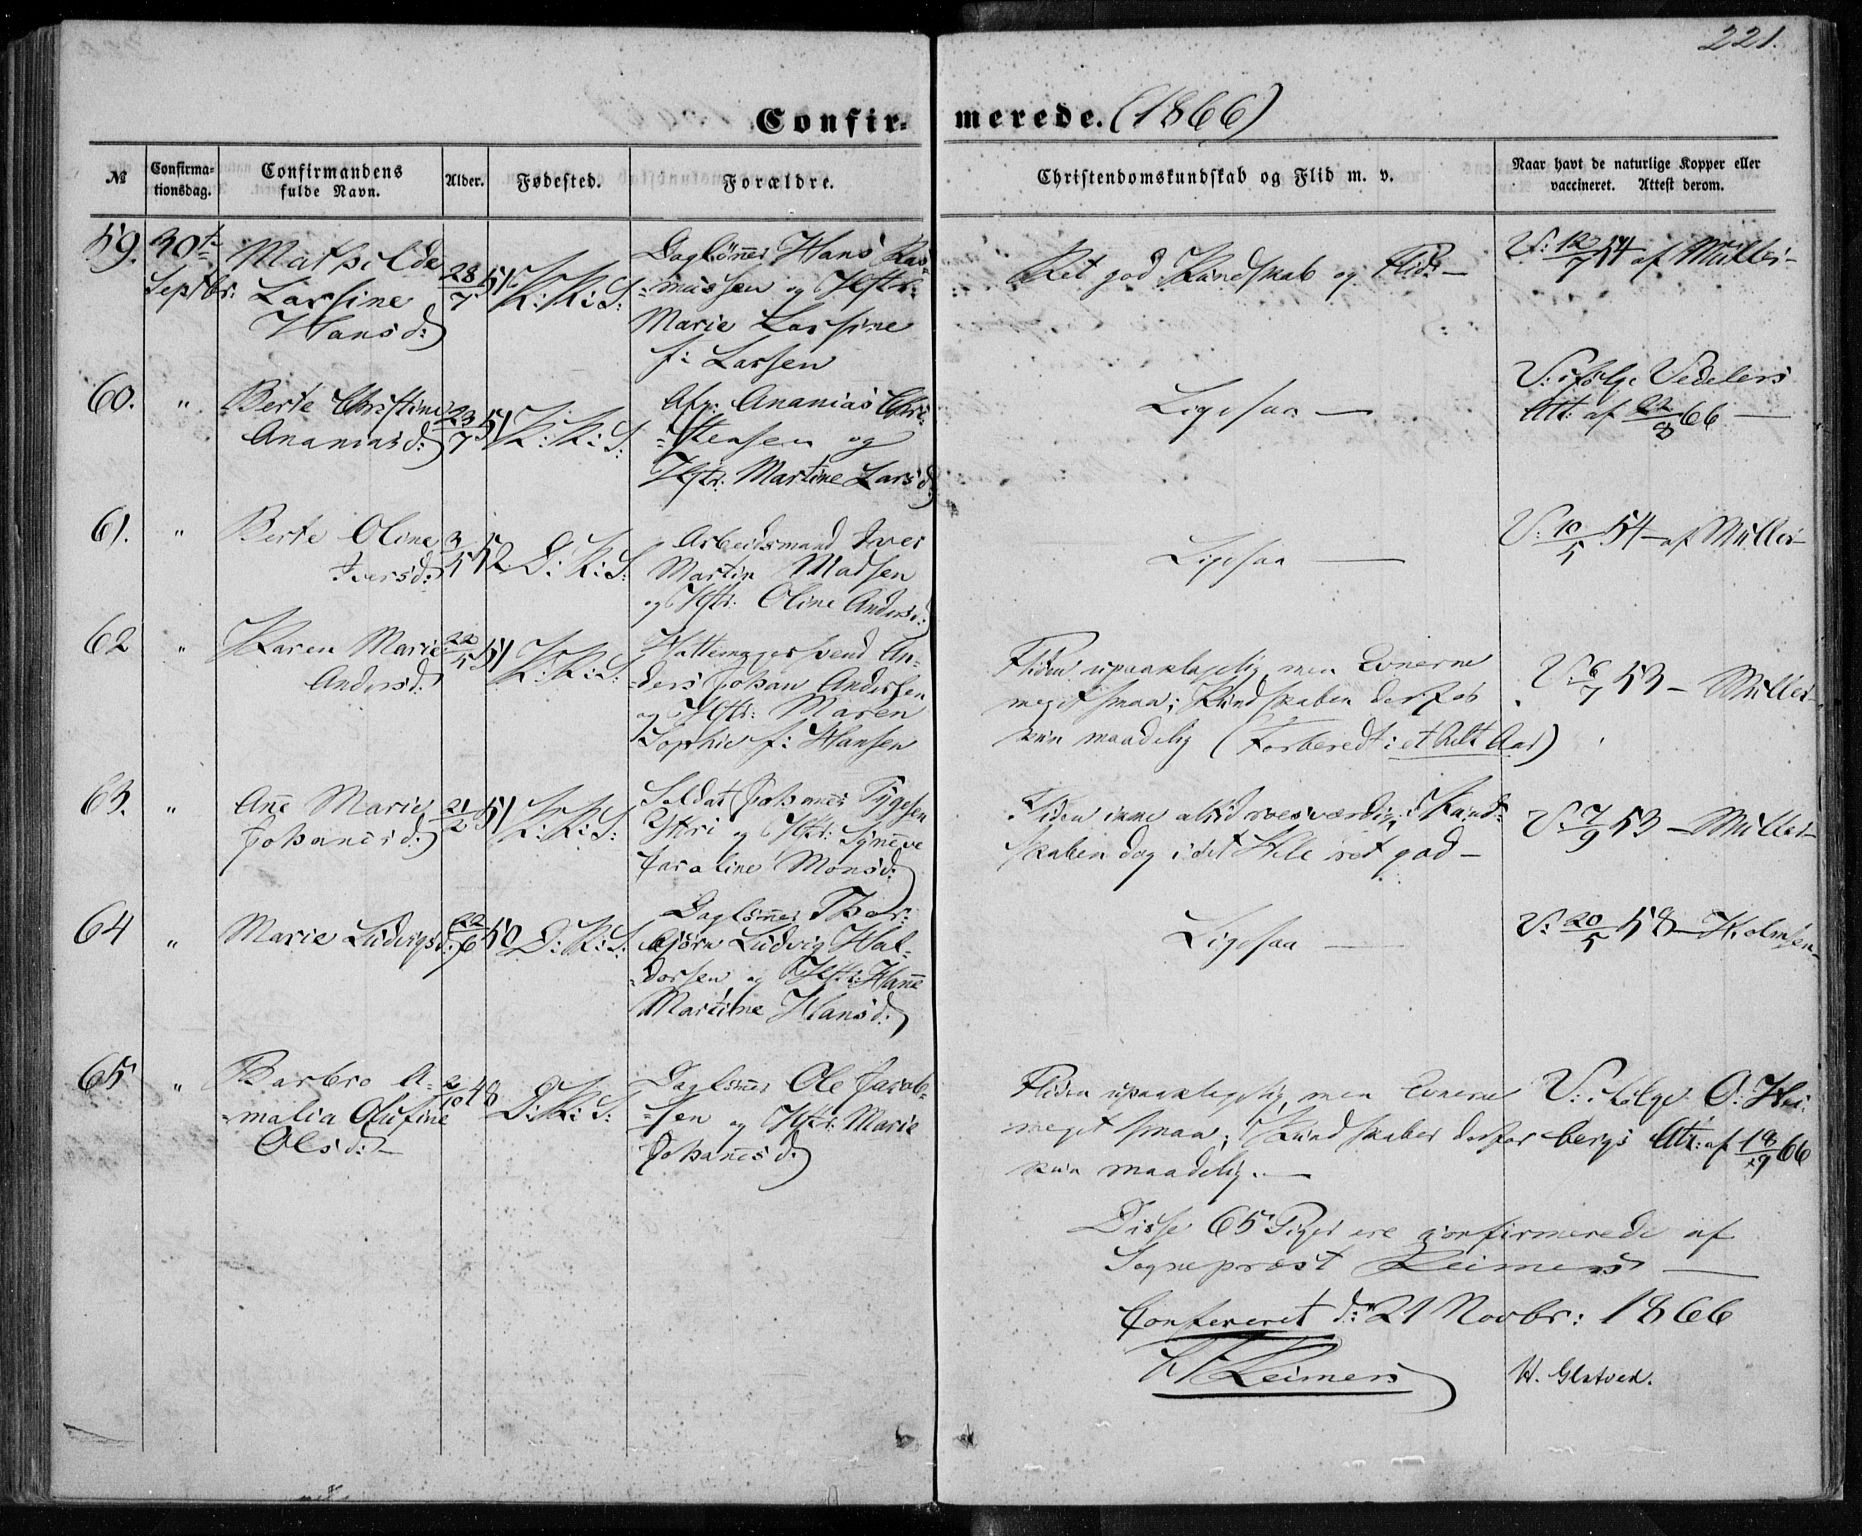 221.
Confir- merede. (1866)
№
Confirma-
tionsdag.
Confirmandens
fulde Navn.
Alder.
Fødested.
Forældre.
Christendomskundskab og Flid m. v.
Naar havt de naturlige Kopper eller
vaccineret. Attest derom.
59. 30te Septbr: Mathilde
Larsine
Hansd:
28/7 51 K: K: S:
Daglönner Hans Ras-
mussen og Hstr:
Marie Larsine
f: Larsen
Ret god Kundskab og Flid: —
V: 12/7 54 af Müller —
60. " Berte Christine
Ananiasd:
23/7 51 K: K: S:
Afg: Ananias Chri-
stensen og
Hstr: Martine Larsd:
Ligesaa —
V: ifølge Vedelers
Att: af 22/8 66 —
61. " Berte Oline
Iversd:
3/5 52 D: K: S:
Arbeidsmand Iver
Martin Madsen
og Hstr: Oline Andersd:
Ligesaa —
V: 10/5 54 — af Müller —
62 " Karen Marie
Andersd:
22/5 51 K: K: S:
Hattemagersvend An-
ders Johan Andersen
og Hstr: Maren
Sophie f: Hansen
Fliden upaaklagelig, men Evnerne
meget smaa; Kundskaben derfor
kun maadelig (Forberedt i et halvt Aar)
V: 6/7 53 — Müller
63. " Anne Marie
Johannesd:
21/2 51 K: K: S:
Soldat Johannes Tygesen
Ytri og Hstr: Synneve
Jaroline Monsd:
Fliden inne altid rosværdig; Kund-
skaben dog i det Hele ret god —
V: 7/9 53 — Müller
64 " Marie Ludvigsd:
22/6 50 D: K: S:
Daglönner Thor-
björn Ludvig Hal-
dorsen og Hstr: Hanne
Martine Hansd:
Ligesaa —
V: 20/5 58 — Holmsen —
65 " Barbro A-
malia Olufine
Olsd: —
2/10 48 D: K: S:
Daglönner Ole Jacob-
sen og Hstr: Marie
Johannesd:
Fliden upaaklagelig, men Evnerne
meget smaa; Kundskaber derfor
kun maadelig. —
V: ifølge O: Hei-
bergs Att: af 18/9 66
Disse 65 Piger ere confirmerede af
Sognepræst Reimers —
Confereret d: 21 Novbr: 1866
Reimers
H. Glatved.